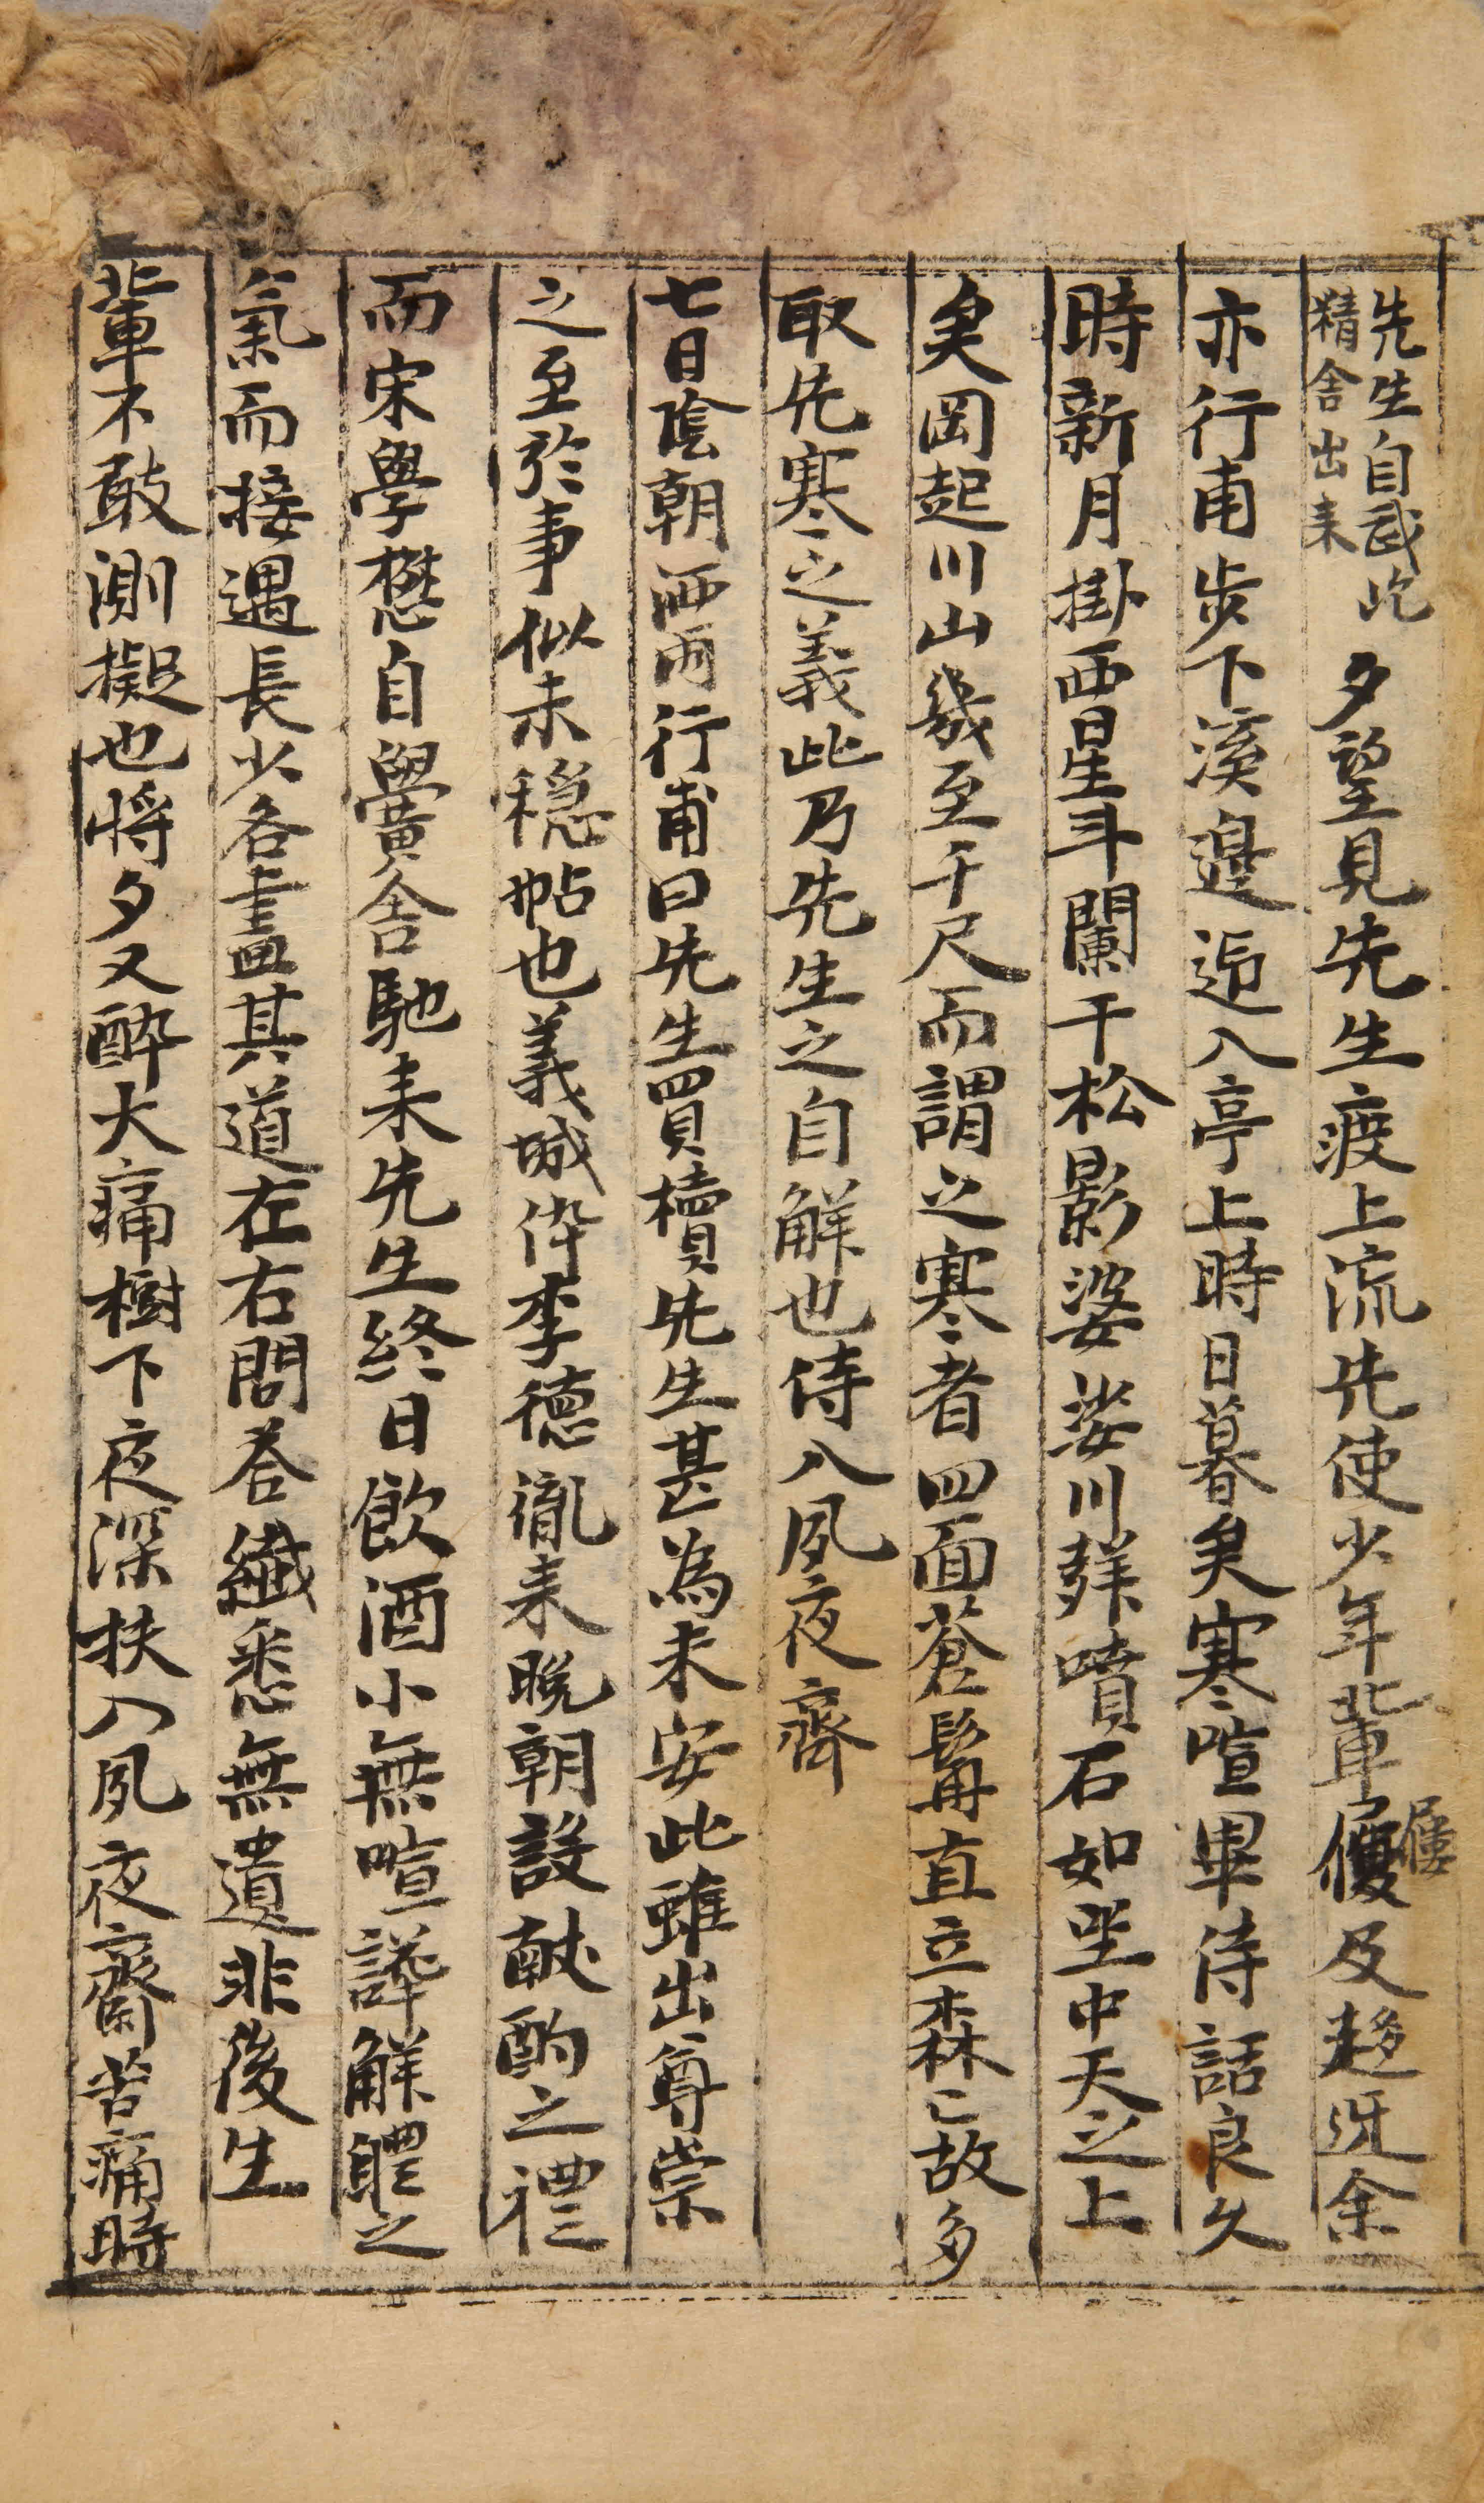 先生自武屹
精舍出来
夕望見先生渡上流先使少年輩屨及趍迓余
屨
亦行甫步下溪邉迎入亭上時日暮矣寒喧畢侍話良久
時新月掛西星斗闌干松影婆娑川舜噴石如坐中天之上
矣岡起川山幾至千尺而謂之寒者四面蒼髯直立森〻故多
取先寒之義此乃先生之自解也侍入夙夜齊
七日陰朝洒雨行甫曰先生買櫝先生甚為未安此雖出尊崇
之至於事似未穏帖也義城倅李德胤来晩朝設献酌之禮
而宋學懋自黌舍馳来先生終日飮酒小無喧譁解軆之
氣而接遇長少各盡其道左右問答纎悉無遺非後生
輩不敢測擬也將夕又醉大痛樹下夜深扶入夙夜齋苦痛時